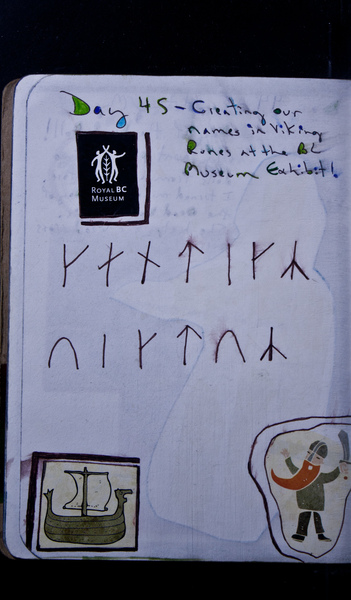 Day 45 - Creating our
names in Viking
Runes at the BC
Museum Exhibit!
ROYAL BC
MUSEUM
ᚴᛅᚾᛏᛁᚴᛦ
ᚢᛁᚴᛏᚢᛦ